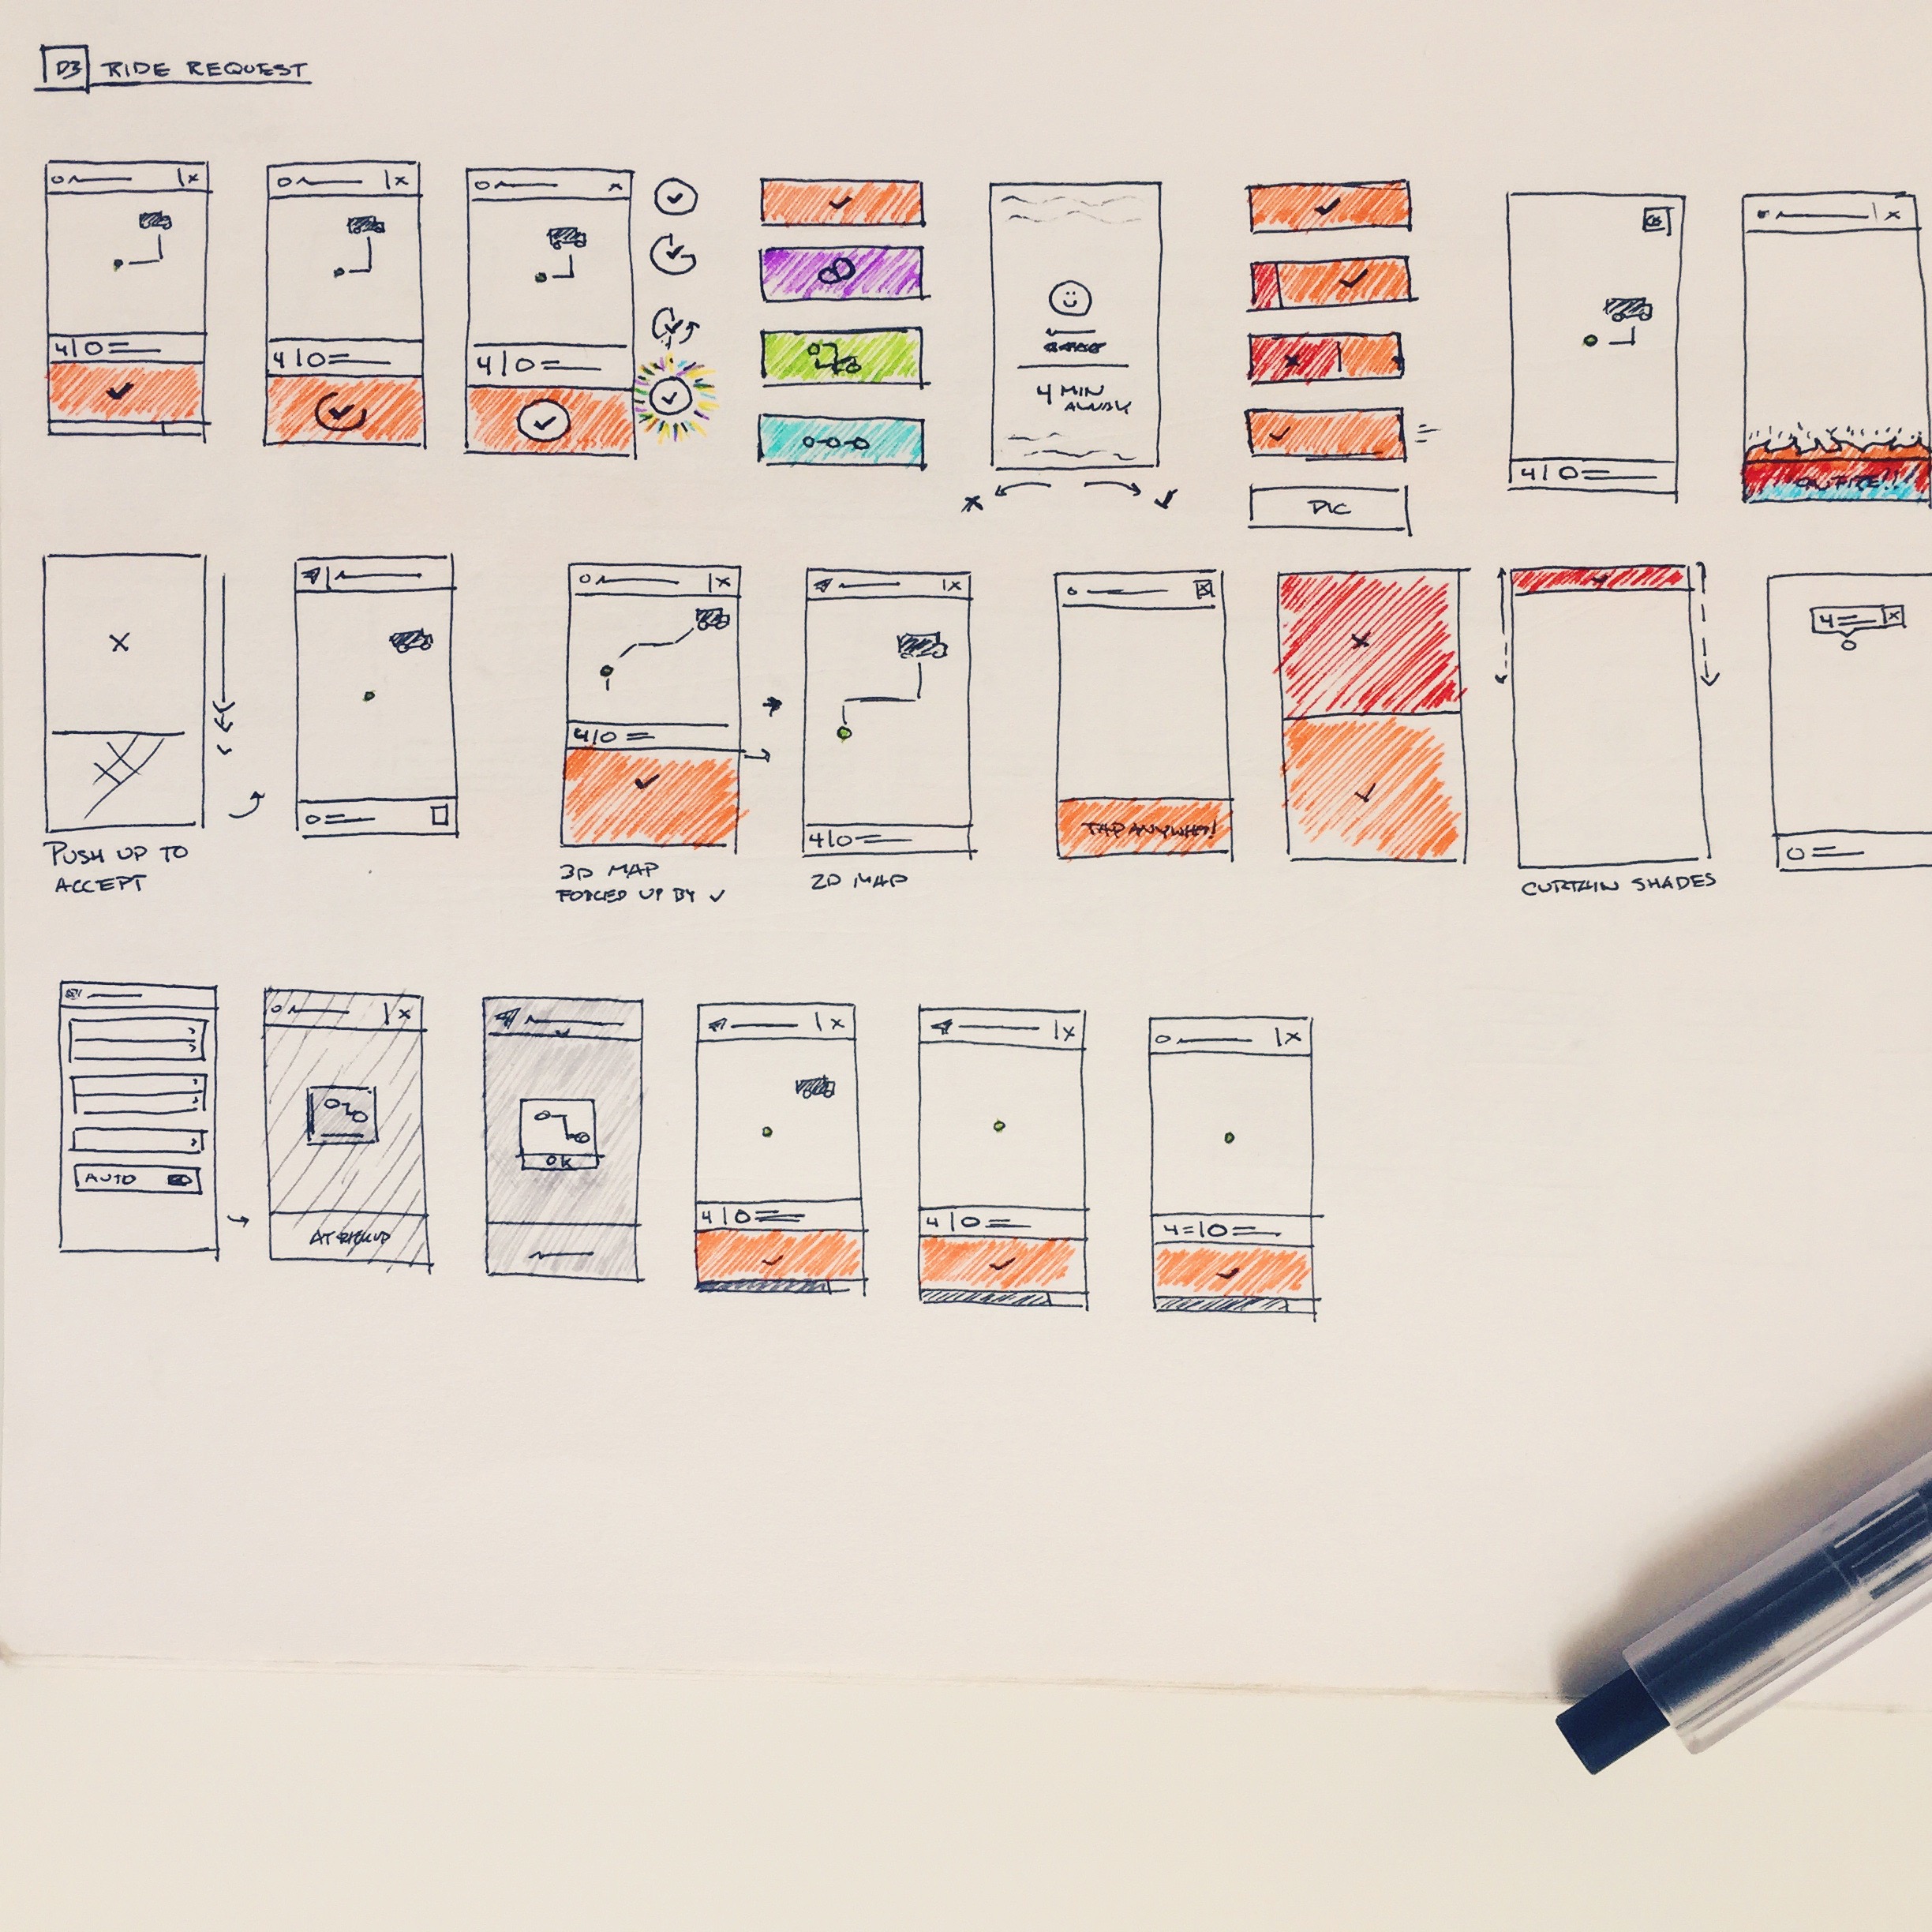 D3 RIDE REQUEST
4|0
4|0
4|0
4 MIN
AWAY
PIC
4|0
ON FIRE!!
4
PUSH UP TO
ACCEPT
4|0
3D MAP
FORCED UP BY ✓
4|0
2D MAP
TAP ANYWHERE!
CURTAIN SHADES
AUTO
AT PICKUP
OK
4|0
4|0
4=|0